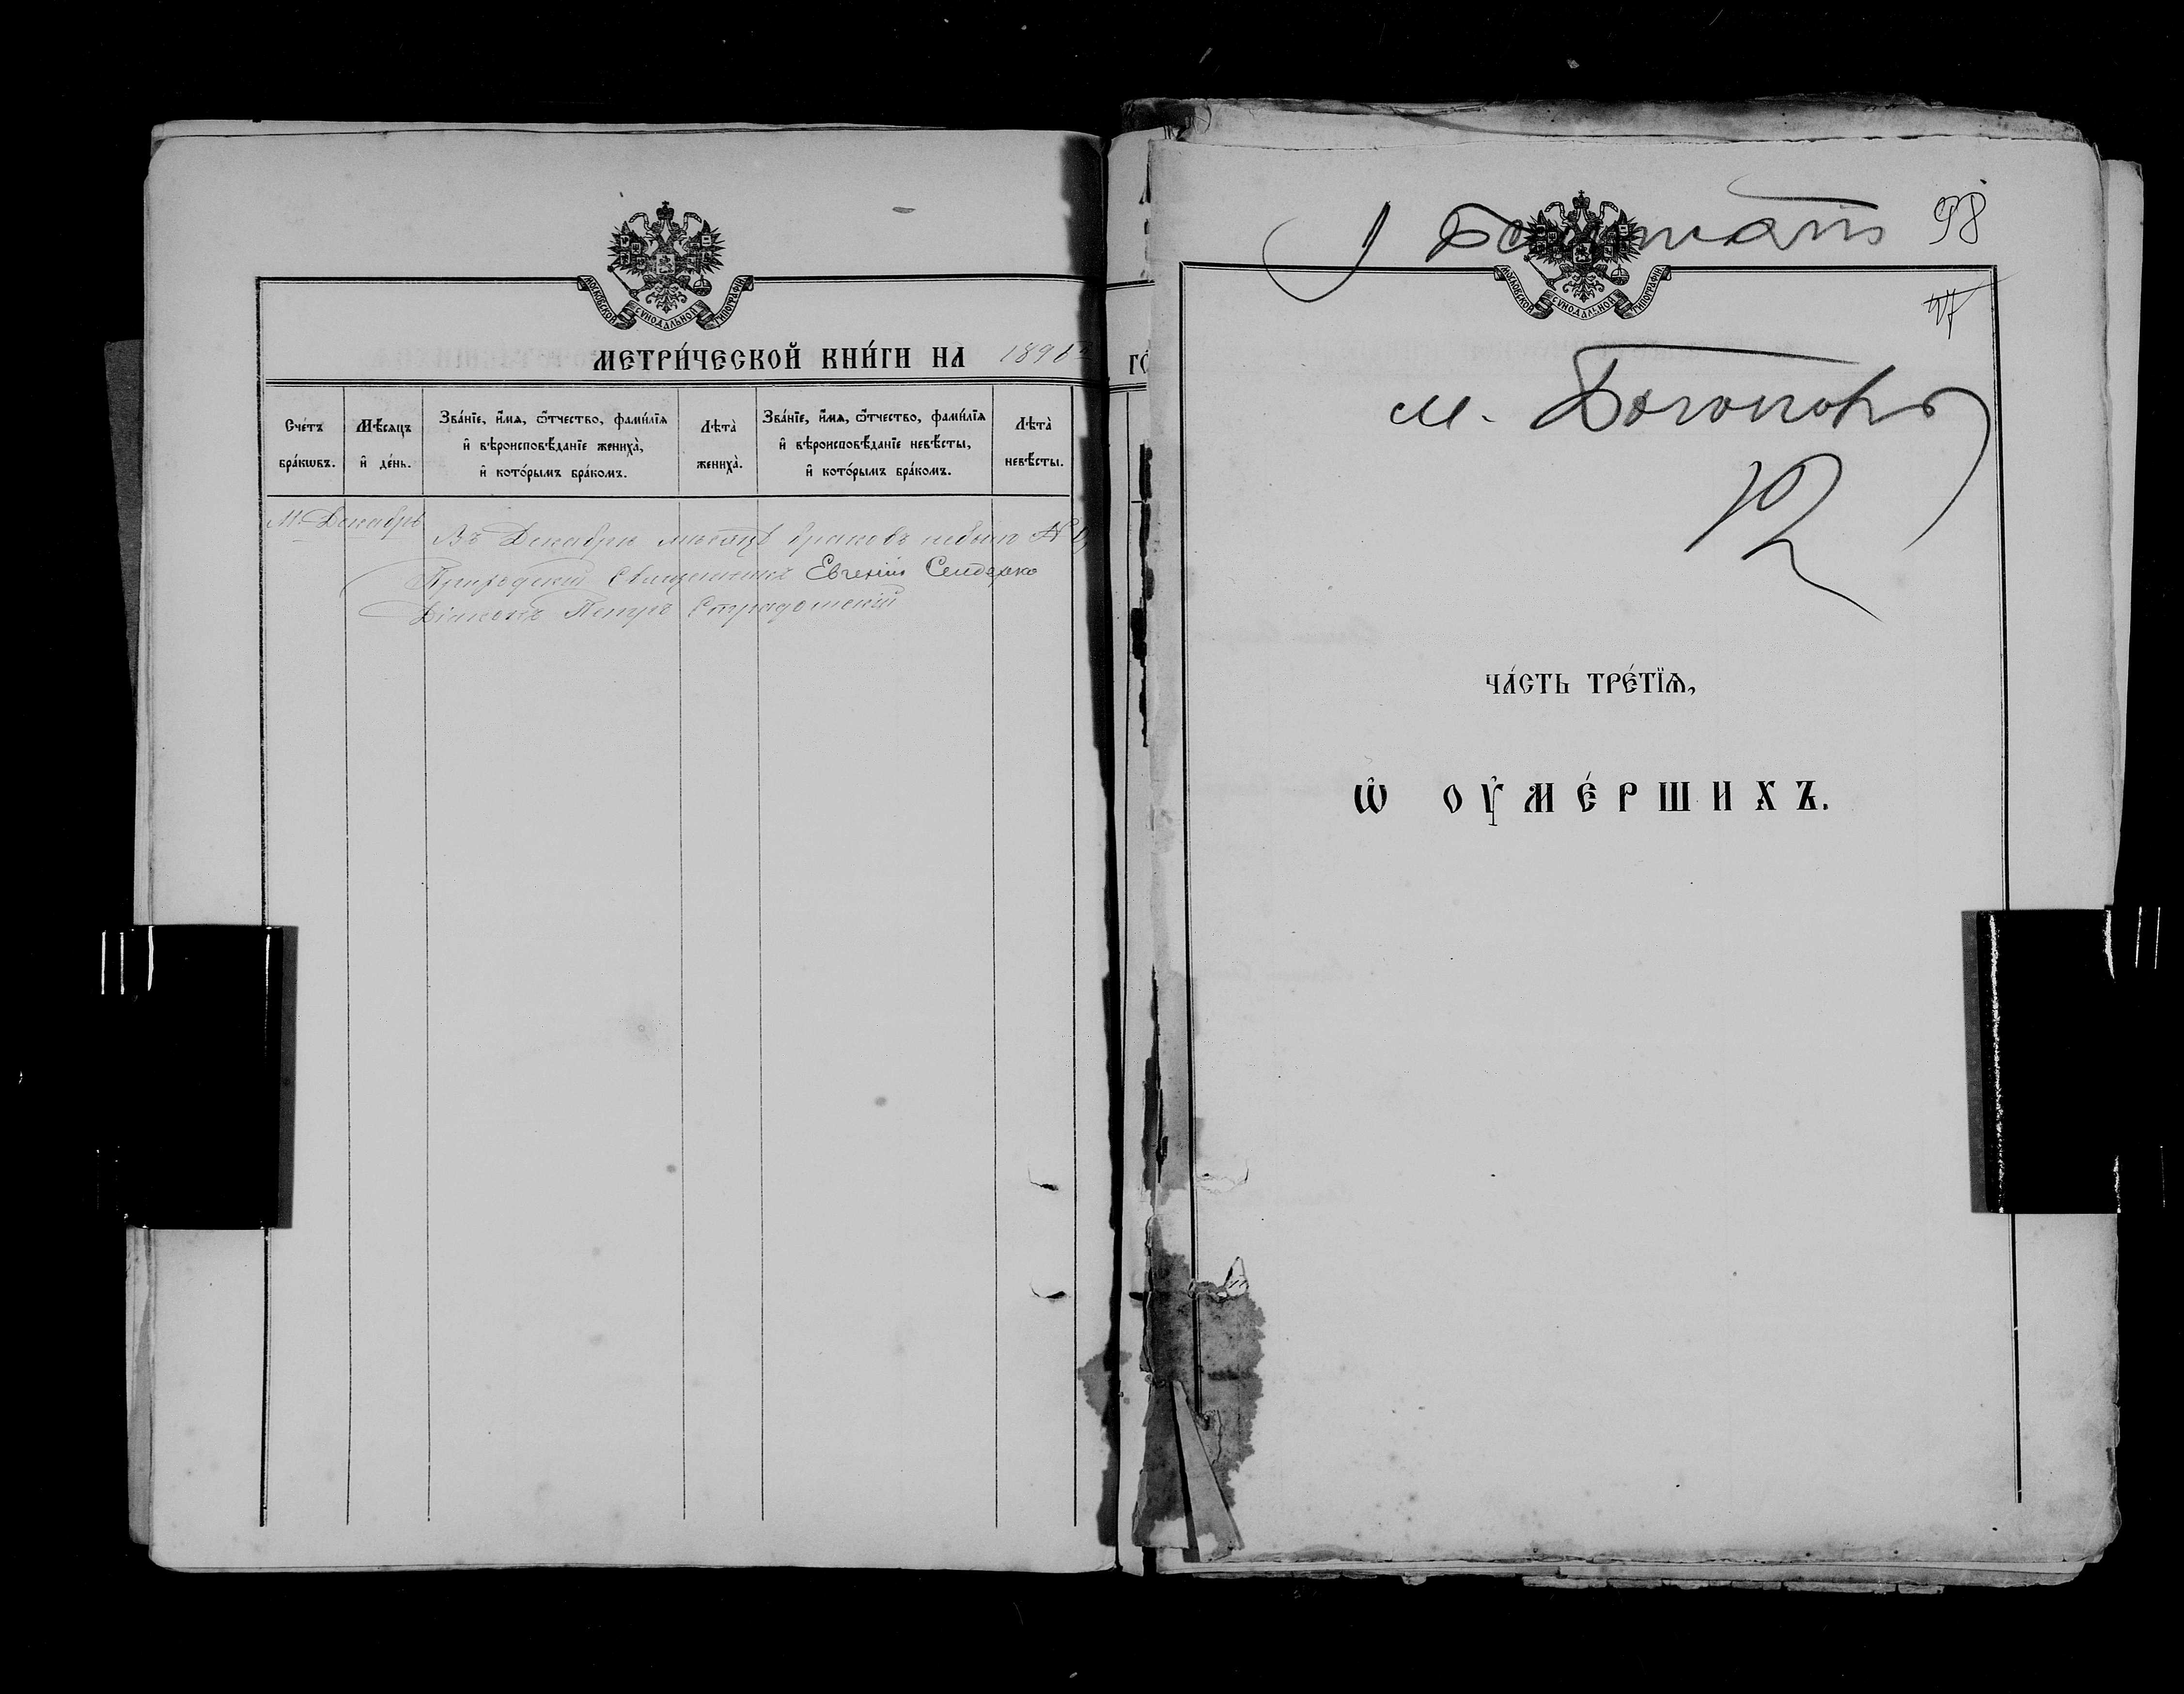 МОСКОВСКОЙ СѴНОДАЛЬНОЙ ТИПОГРАФІИ
МЕТРИ́ЧЕСКОЙ КНИ́ГИ НА 1896
Сче́тъ бра́кѡвъ.
Мѣ́сяцъ и҆ де́нь.
Зва́нїе, и҆́мя, ѻ҆́тчество, фами́лїя
и҆ вѣроисповѣ́данїе жениха̀,
и҆ кото́рымъ бра́комъ.
Лѣта̀ жениха̀.
Зва́нїе, и҆́мя, ѻ҆́тчество, фами́лїя
и҆ вѣроисповѣ́данїе невѣ́сты,
и҆ кото́рымъ бра́комъ.
Лѣта̀ невѣ́сты.
М. Декабрь
Въ Декабрѣ мѣсяцѣ браковъ небыло
Приходскій Священникъ Евгеній
Діаконъ Петръ
98
МОСКОВСКОЙ СѴНОДАЛЬНОЙ ТИПОГРАФІИ
97
м.
ЧА́СТЬ ТРЕ́ТЇѦ,
Ѡ҆ ОУ҆МЕ́РШИХЪ.